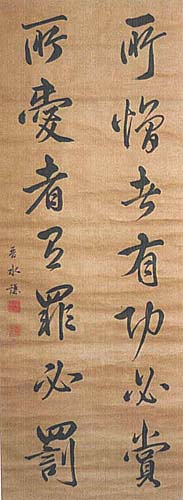 所憎者有功必賞
所愛者有罪必罰